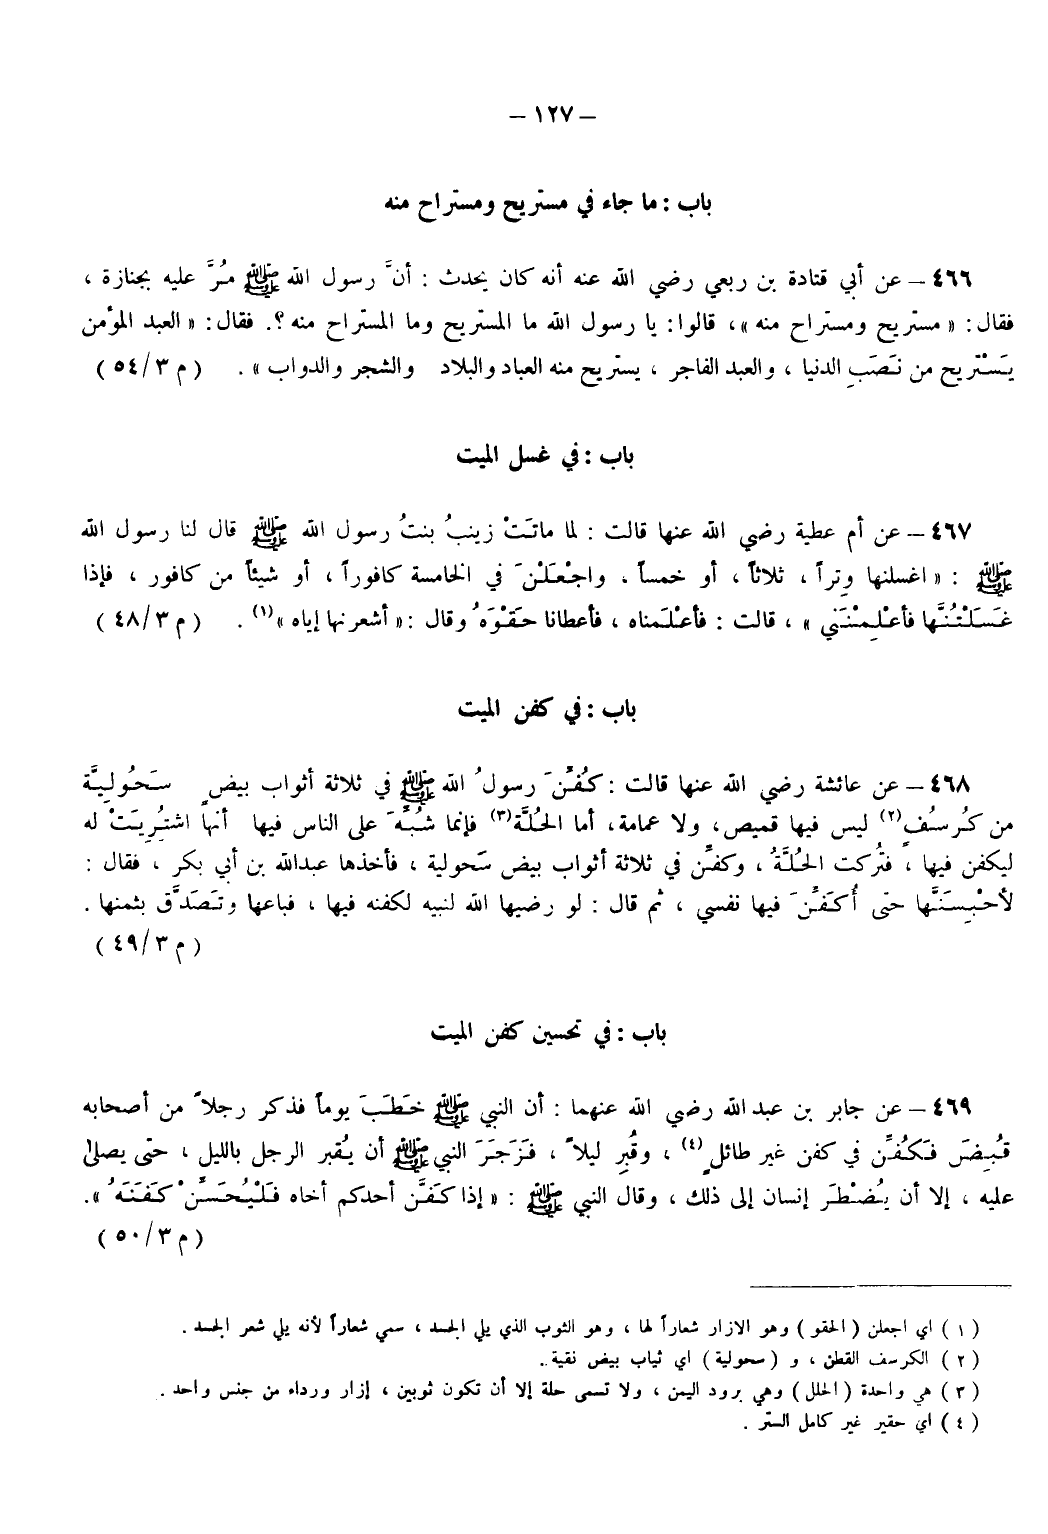 – ١٢٧ –
باب : ما جاء في مستريح ومستراح منه
٤٦٦ – عن أبي قتادة بن ربعي رضي الله عنه أنه كان يحدث : أنَّ رسول الله ﷺ مُرَّ عليه بجنازة ،
فقال : « مستريح ومستراح منه » ، قالوا : يا رسول الله ما المستريح وما المستراح منه ؟. فقال : « العبد المؤمن
يَسْتريح من نَصَبِ الدنيا ، والعبد الفاجر ، يستريح منه العباد والبلاد والشجر والدواب » . ( م ٣/٥٤ )
باب : في غسل الميت
٤٦٧ – عن أم عطية رضي الله عنها قالت : لما ماتَتْ زينبُ بنتُ رسول الله ﷺ قال لنا رسول الله
ﷺ : « اغسلنها وِتراً ، ثلاثاً ، أو خمساً ، واجْعَلْنَ في الخامسة كافوراً ، أو شيئاً من كافور ، فإذا
غَسَلْتُنَّها فأعْلِمْنَني » ، قالت : فأعْلَمناه ، فأعطانا حَقْوَهُ وقال : « أشعرنها إياه »(١) . ( م ٣/٤٨ )
باب : في كفن الميت
٤٦٨ – عن عائشة رضي الله عنها قالت : كُفِّنَ رسولُ الله ﷺ في ثلاثة أثواب بيضٍ سَحُولِيَّة
من كُرسُفٍ(٢) ليس فيها قميص، ولا عمامة، أما الحُلَّة(٣) فإنما شُبِّهَ على الناس فيها أنها اشتُرِيَتْ له
ليكفن فيها ، فتُركت الحُلَّةُ ، وكفِّن في ثلاثة أثواب بيض سَحولية ، فأخذها عبدالله بن أبي بكر ، فقال :
لأحْبِسَنَّها حتى أُكَفِّنَ فيها نفسي ، ثم قال : لو رضيها الله لنبيه لكفنه فيها ، فباعها وتَصَدَّق بثمنها .
( م ٣/٤٩ )
باب : في تحسين كفن الميت
٤٦٩ – عن جابر بن عبد الله رضي الله عنهما : أن النبي ﷺ خَطَبَ يوماً فذكر رجلاً من أصحابه
قُبِضَ فَكُفِّن في كفن غير طائلٍ(٤) ، وقُبِر ليلاً ، فَزَجَرَ النبي ﷺ أن يُقبر الرجل بالليل ، حتى يصلىٰ
عليه ، إلا أن يُضْطَر إنسان إلى ذلك ، وقال النبي ﷺ : « إذا كَفَّن أحدكم أخاه فَلْيُحَسِّنْ كَفَنَهُ » .
( م ٣/٥٠ )
( ١ ) اي اجعلن ( الحقو ) وهو الازار شعاراً لها ، وهو الثوب الذي يلي الجسد ، سمي شعاراً لأنه يلي شعر الجسد .
( ٢ ) الكرسف القطن ، و ( سحولية ) اي ثياب بيض نقية .
( ٣ ) هي واحدة ( الحلل ) وهي برود اليمن ، ولا تسمى حلة إلا أن تكون ثوبين ، إزار ورداء من جنس واحد .
( ٤ ) اي حقير غير كامل الستر .